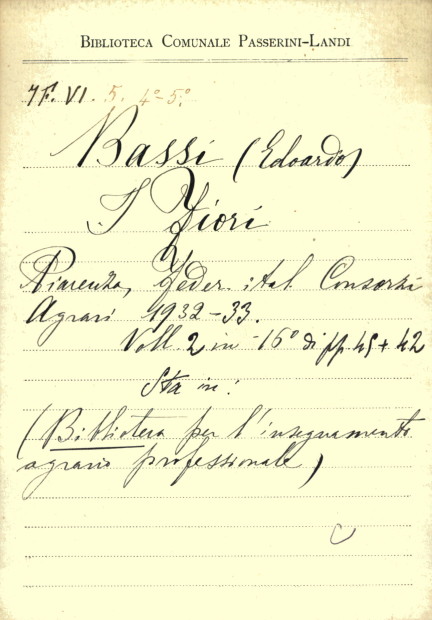 BIBLIOTECA COMUNALE PASSERINI-LANDI
7F. VI. 5. 4º-5º
Bassi (Edoardo)
I Fiori
Piacenza, Feder. ital. Consorzi
Agrari 1932-33.
Voll. 2 in -16º di pp. 45 + 42
Sta in:
(Biblioteca per l'insegnamento
agrario professionale)
C